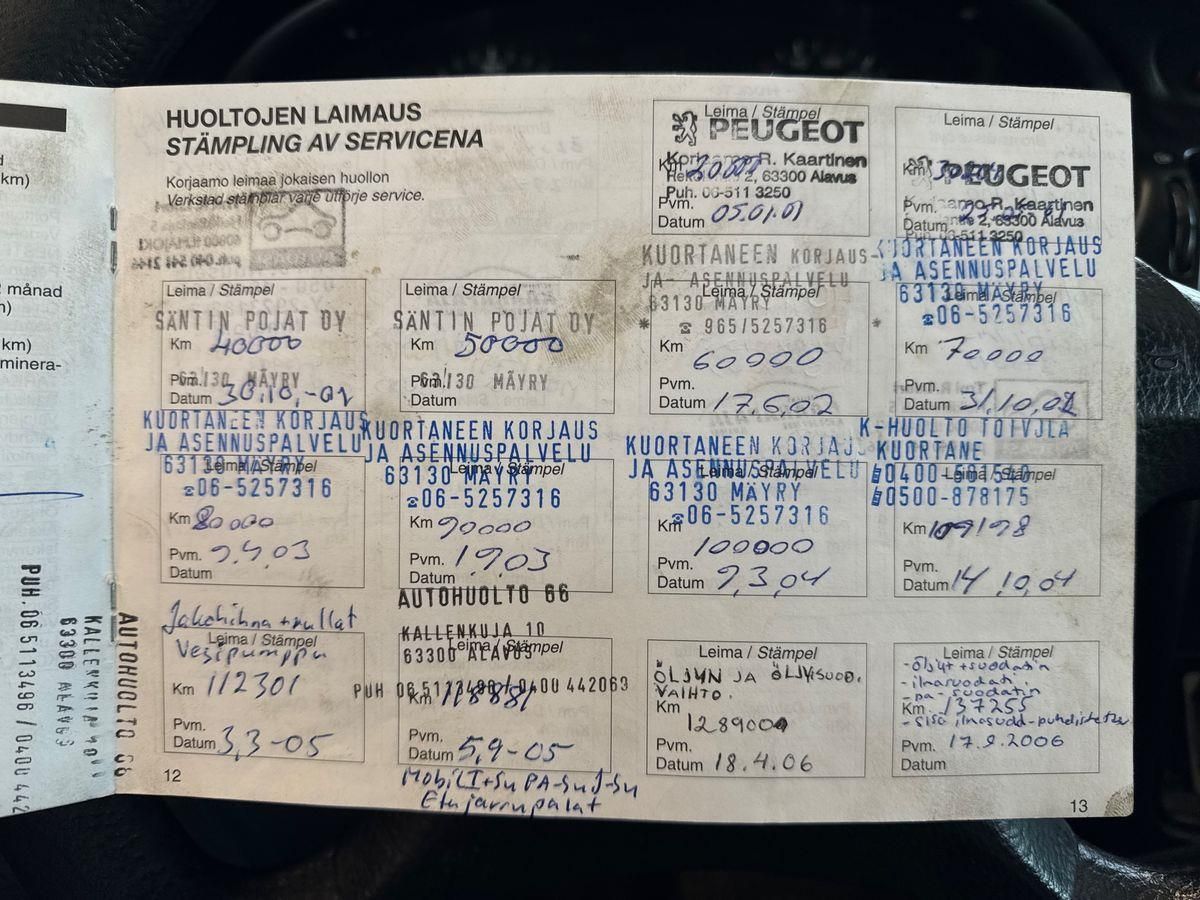 km)
2 månad
km)
minera-
PUH. 06 5113496 / 0400 442
63300 ALAVUS
AUTOHUOLTO 66
HUOLTOJEN LAIMAUS
STÄMPLING AV SERVICENA
Korjaamo leimaa jokaisen huollon
Verkstad stämplar varje utförje service.
Leima / Stämpel
PEUGEOT
Korjaamo R. Kaartinen
63300 Alavus
Puh. 06-511 3250
Km 20000
Pvm.
Datum 05.01.01
Leima / Stämpel
PEUGEOT
Km
R. Kaartinen
63300 Alavus
Puh. 06-511 3250
Pvm.
Datum
Leima / Stämpel
SÄNTIN POJAT OY
Km 40000
63130 MÄYRY
Pvm.
Datum 30.10.-01
Leima / Stämpel
SÄNTIN POJAT OY
Km 50000
63130 MÄYRY
Pvm.
Datum
KUORTANEEN KORJAUS-
JA- ASENNUSPALVELU
63130 MÄYRY
Leima / Stämpel
* ☎ 965/5257316 *
Km 60000
Pvm.
Datum 17.6.02
KUORTANEEN KORJAUS
JA ASENNUSPALVELU
63130 MÄYRY
Leima / Stämpel
☎06-5257316
Km 70000
Pvm.
Datum 31.10.02
KUORTANEEN KORJAUS
JA ASENNUSPALVELU
63130 MÄYRY
Leima / Stämpel
☎06-5257316
Km 80000
Pvm. 9.4.03
Datum
KUORTANEEN KORJAUS
JA ASENNUSPALVELU
63130 MÄYRY
Leima / Stämpel
☎06-5257316
Km 90000
Pvm. 1.9.03
Datum
KUORTANEEN KORJAUS
JA ASENNUSPALVELU
Leima / Stämpel
63130 MÄYRY
☎06-5257316
Km 100000
Pvm.
Datum 9.3.04
K-HUOLTO TOIVOLA
KUORTANE
Leima / Stämpel
0500-878175
Km 109198
Pvm.
Datum 14.10.04
Jakohihna + rullat
Leima / Stämpel
Vesipumppu
Km 112301
Pvm.
Datum 3,3-05
AUTOHUOLTO 66
KALLENKUJA 10
Leima / Stämpel
63300 ALAVUS
PUH 06 5113496 / 0400 442063
Km 118881
Pvm.
Datum 5,9-05
Etujarrupalat
Leima / Stämpel
ÖLJYN JA ÖLJYISUOD.
VAIHTO.
Km
128900
Pvm.
Datum 18.4.06
Leima / Stämpel
- öljyt + suodatin
- ilmasuodati.
- pa - suodatin
Km. 137255
Pvm. 17.9.2006
Datum
12
13